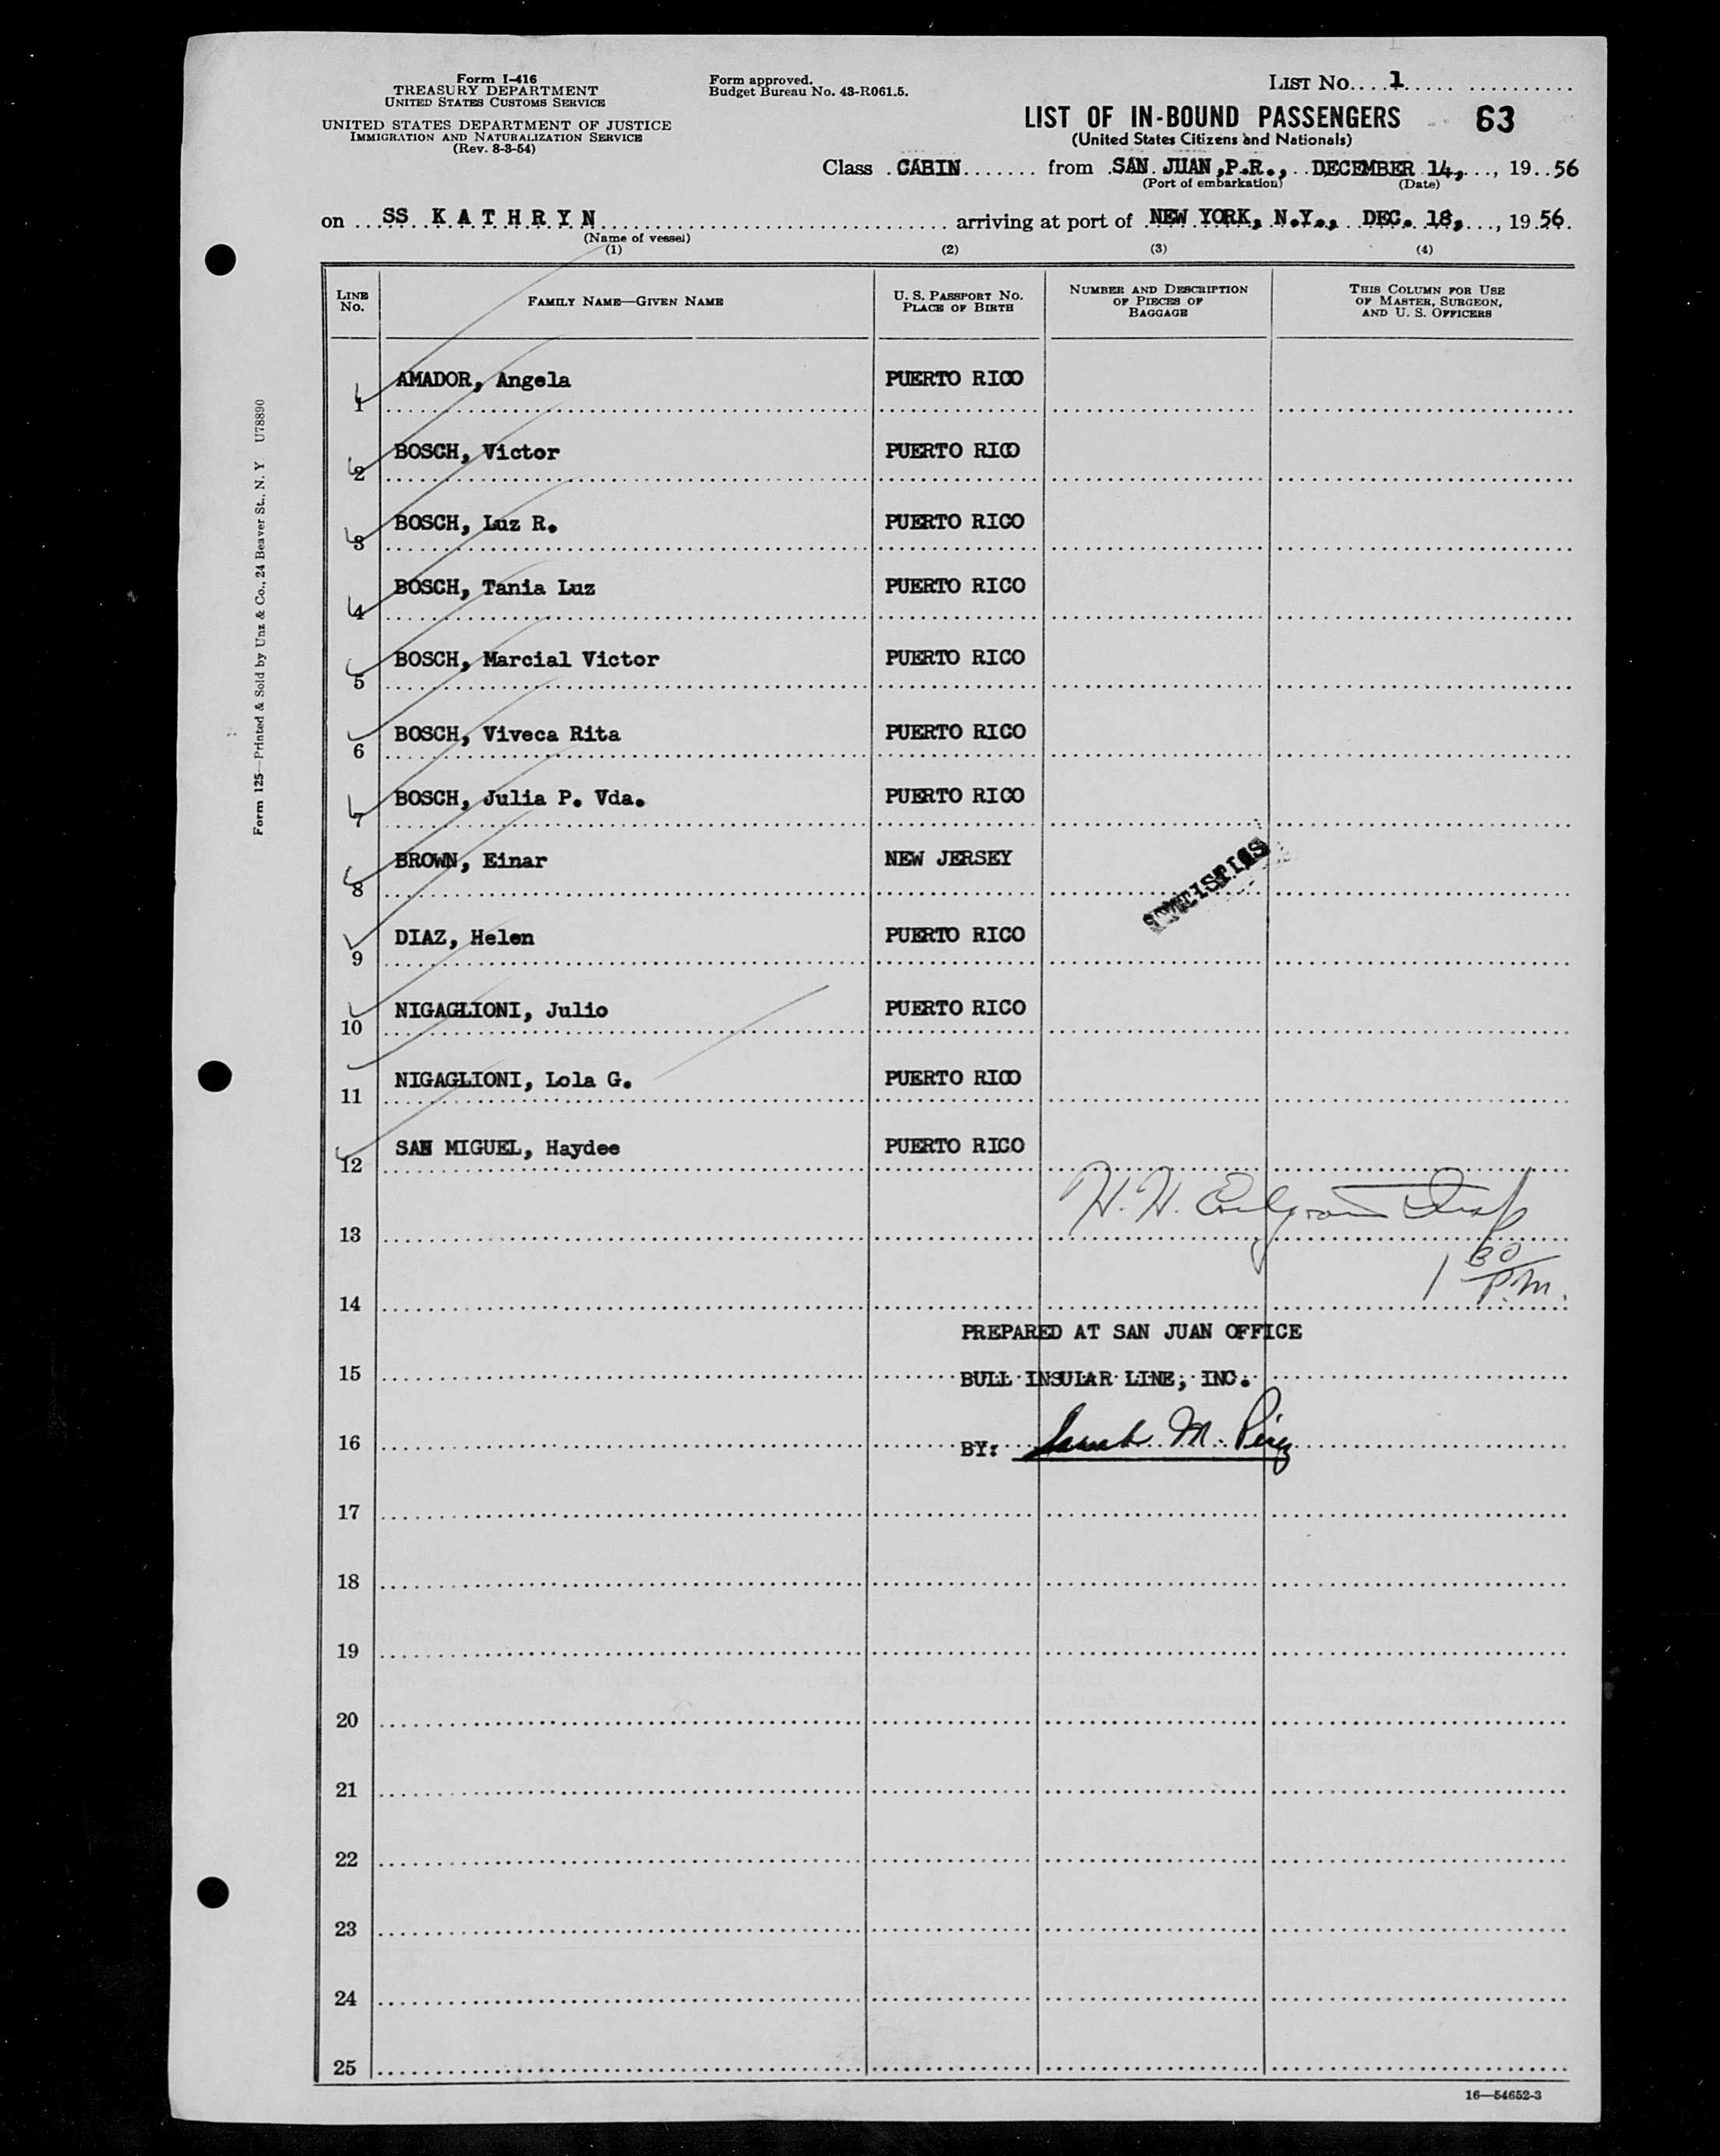 Form I-416
TREASURY DEPARTMENT
UNITED STATES CUSTOMS SERVICE
UNITED STATES DEPARTMENT OF JUSTICE
IMMIGRATION AND NATURALIZATION SERVICE
(Rev. 8-3-54)
Form approved.
Budget Bureau No. 43-R061.5.
LIST No. 1
LIST OF IN-BOUND PASSENGERS 63
(United States Citizens and Nationals)
Class CABIN from SAN JUAN, P.R., DECEMBER 14, 1956
(Port of embarkation) (Date)
on SS KATHRYN arriving at port of NEW YORK, N.Y., DEC. 18, 1956.
(Name of vessel)
(1) (2) (3) (4)
LINE No. FAMILY NAME—GIVEN NAME U. S. PASSPORT No. PLACE OF BIRTH NUMBER AND DESCRIPTION OF PIECES OF BAGGAGE THIS COLUMN FOR USE OF MASTER, SURGEON, AND U. S. OFFICERS
1 AMADOR, Angela PUERTO RICO
2 BOSCH, Victor PUERTO RICO
3 BOSCH, Luz R. PUERTO RICO
4 BOSCH, Tania Luz PUERTO RICO
5 BOSCH, Marcial Victor PUERTO RICO
6 BOSCH, Viveca Rita PUERTO RICO
7 BOSCH, Julia P. Vda. PUERTO RICO
8 BROWN, Einar NEW JERSEY
STATISTICS
9 DIAZ, Helen PUERTO RICO
10 NIGAGLIONI, Julio PUERTO RICO
11 NIGAGLIONI, Lola G. PUERTO RICO
12 SAN MIGUEL, Haydee PUERTO RICO
H. H.
13
1 30 P.M.
14
PREPARED AT SAN JUAN OFFICE
15 BULL INSULAR LINE, INC.
16 BY: M. Pérez
17
18
19
20
21
22
23
24
25
16—54652-3
Form 125—Printed & Sold by Unz & Co., 24 Beaver St., N. Y. U78890